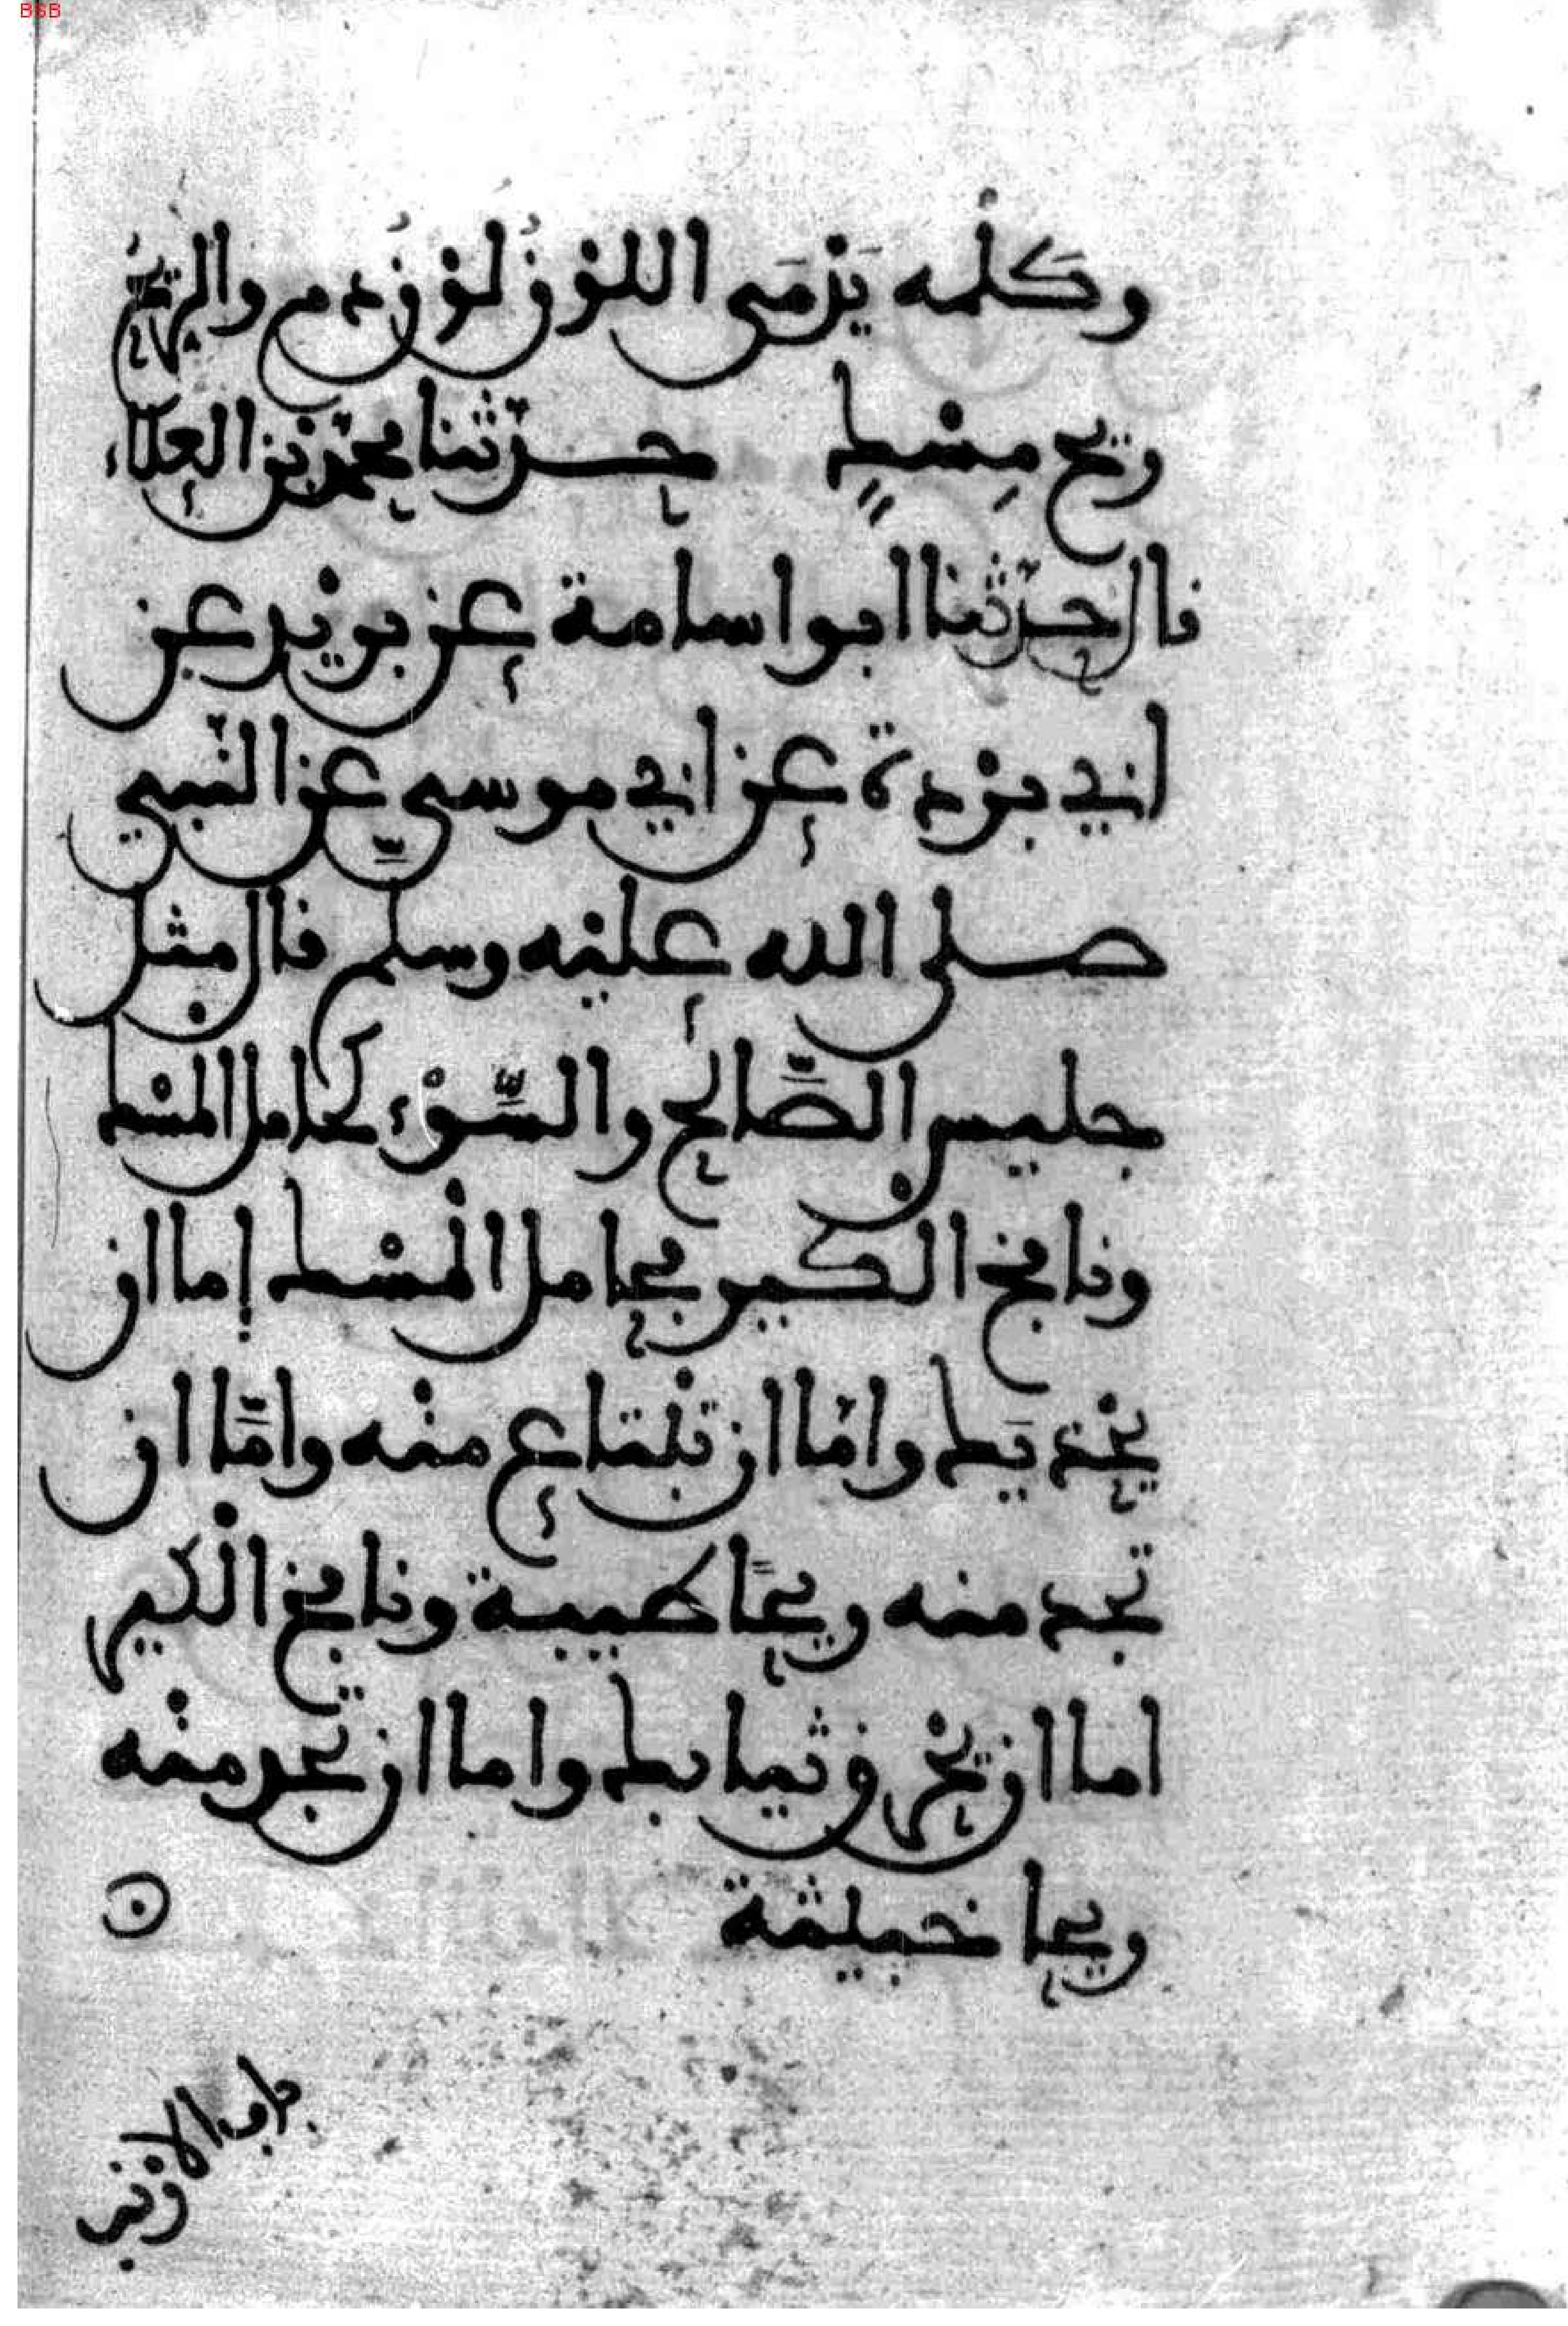 BSB
وكلمه يَدْمَى اللوْن لوْنُ دم والريحُ
ريح مِسْكٍ حدّثنا محمّد بن العلاء
قال حدّثنا ابو اسامة عن بريْد عن
ابي برْدة عن ابي موسى عن النّبي
صلى الله عليْه وسلّم قال مثل
جليس الصَّالح والسَّوْء كحامل المسْك
ونافخ الكير فحامل الْمسْك إما ان
يحْذيَك وامّا ان تبْتاع منْه وامَّا ان
تجد منه ريحًا طيبة ونافخ الْكير
اما ان يحْرق ثيابك واما ان تجد منْه
ريحا خبيثة
باب الارْنب